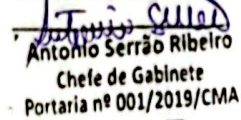 Antonio Serrão Ribeiro
Chefe de Gabinete
Portaria nº 001/2019/CMA